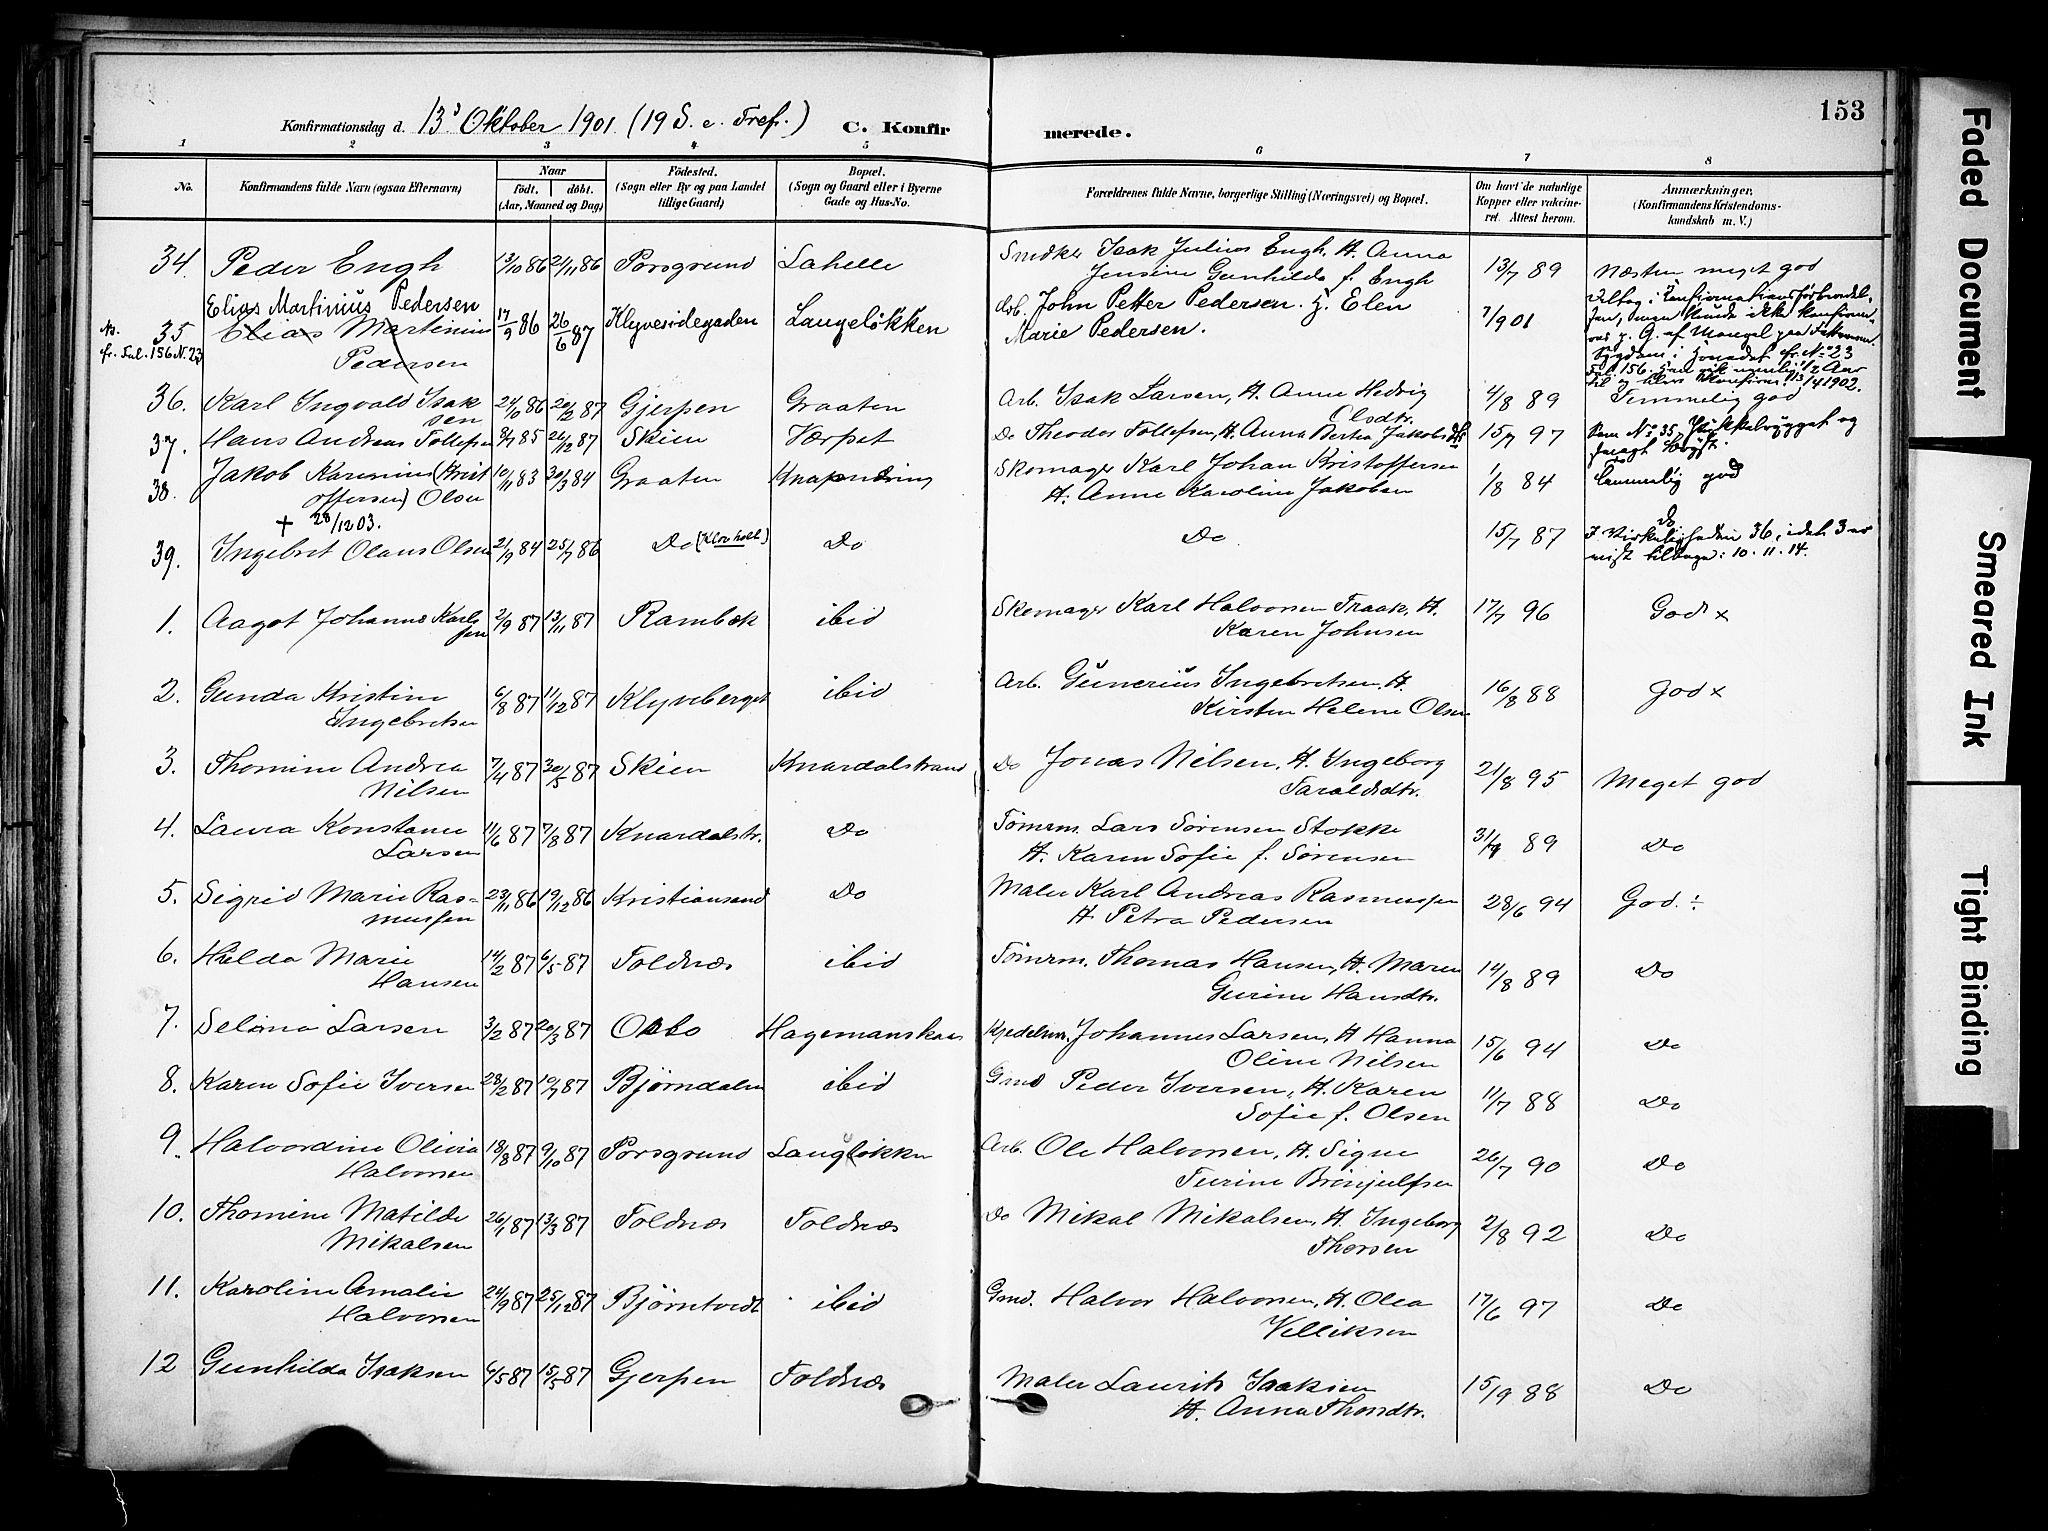 153
Konfirmationsdag d. 13d Oktober 1901 (19 S. e. Tref.) C. Konfirmerede.
1 2 3 4 5 6 7 8
No. Konfirmandens fulde Navn (ogsaa Efternavn) Naar født. døbt. (Aar, Maaned og Dag) Fødested. (Sogn eller By og paa Landet tillige Gaard) Bopæl. (Sogn og Gaard eller i Byerne Gade og Hus-No. Forældrenes fulde Navne, borgerlige Stilling (Næringsvei) og Bopæl. Om havt de naturlige Kopper eller vaccineret. Attest herom. Anmærkninger. (Konfirmandens Kristendomskundskab m. V.)
34. Peder Engh 13/10 86 21/11 86 Porsgrund Lahelle Snedker Isak Julius Engh, H. Anna
Jensine Gunhilda f. Engh 13/7 89 Næsten meget god
Elias Martinius Pedersen
35 Elias Martinius 17/9 86 26/6 87 Klyvesidegaden Langeløkken Arb. John Petter Pedersen. H. Elen
Pedersen Marie Pedersen. 7/1901
fr. Fol. 156 N. 23
Fol 156. 13/4 1902.
36. Karl Ingvald Isaksen 24/10 86 20/2 87 Gjerpen Graaten Arb. Isak Larsen, H. Anne Hedvig
Olsdtr. 4/8 89 Temmelig god
37. Hans Andreas Tollefsen 3/7 85 26/12 87 Skien Værpet Do Theodor Tollefsen, H. Anna Bertea Jakobsdtr 15/7 97 Som No 35,
38. Jakob Karenius (Kristoffersen) Olsen 10/11 83 30/3 84 Graaten Knapnæring Skomager Karl Johan Kristoffersen
H. Anne Karoline Jakobsen 1/8 84 Temmelig god
+ 28/12 03.
39. Ingebret Olaus Olsen 21/9 84 25/7 86 Do (Klovholt) Do Do 15/7 87 Do
I Virkeligheden 36, idet 3 er
10.11.14.
1. Aagot Johanne Karlsen 2/9 87 13/11 87 Rambæk ibid Skomager Karl Halvorsen Traak, H.
Karen Johnsen 17/7 96 God x
2. Gunda Kristine
Ingebretsen 6/8 87 11/12 87 Klyveberget ibid Arb. Gunerius Ingebretsen, H.
Kirsten Helene Olsen 16/8 88 God x
3. Thomine Andrea
Nilsen 7/4 87 30/5 87 Skien Knardalstrand Do Jonas Nilsen, H. Ingeborg
Taraldsdtr. 21/8 95 Meget god
4. Laura Konstanse
Larsen 11/6 87 7/8 87 Knardalstr. Do Tømrm. Lars Sørensen Stokke
H. Karen Sofie f. Sørensen 31/7 89 Do
5. Sigrid Marie Rasmussen 23/11 86 19/12 86 Kristiansand Do Maler Karl Andreas Rasmussen
H. Petra Pedersen 28/6 94 God. ÷
6. Hilda Marie
Hansen 14/2 87 6/5 87 Foldnæs ibid Tømrm. Thomas Hansen, H. Maren
Gurine Hansdtr. 14/8 89 Do
7. Selina Larsen 3/2 87 20/3 87 Osebo Hagemanskaas Kjedelsm. Johannes Larsen, H Hanna
Oline Nilsen 15/6 94 Do
8. Karen Sofie Iversen 23/2 87 10/7 87 Bjørndalen ibid Gmd Peder Iversen, H. Karen
Sofie f. Olsen 11/7 88 Do
9. Halvordine Olivia
Halvorsen 13/8 87 9/10 87 Porsgrund Langeløkken Arb. Ole Halvorsen, H. Signe
Turine Brynjulfsen 26/7 90 Do
10. Thomine Matilde
Mikalsen 26/1 87 13/3 87 Foldnæs Foldnæs Do Mikal Mikalsen, H. Ingeborg
Thorsen 2/8 92 Do
11. Karoline Amalie
Halvorsen 24/9 87 25/12 87 Bjørntvedt ibid Gmd. Halvor Halvorsen, H. Olea
Villiksen 17/6 97 Do
12 Gunhilda Isaksen 6/5 87 15/5 87 Gjerpen Foldnæs Maler Laurits Isaksen
H. Anna Thorsdtr. 15/9 88 Do
Faded Document
Smeared Ink
Tight Binding